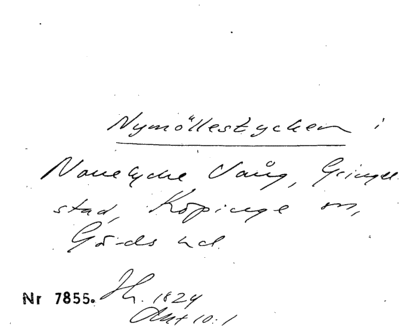 Nymöllestycken i
Norrelycke Vång, Gringel-
stad, Köpinge sn,
Gärds hd.
Nr 7855. Jh. 1824
Akt 10:1